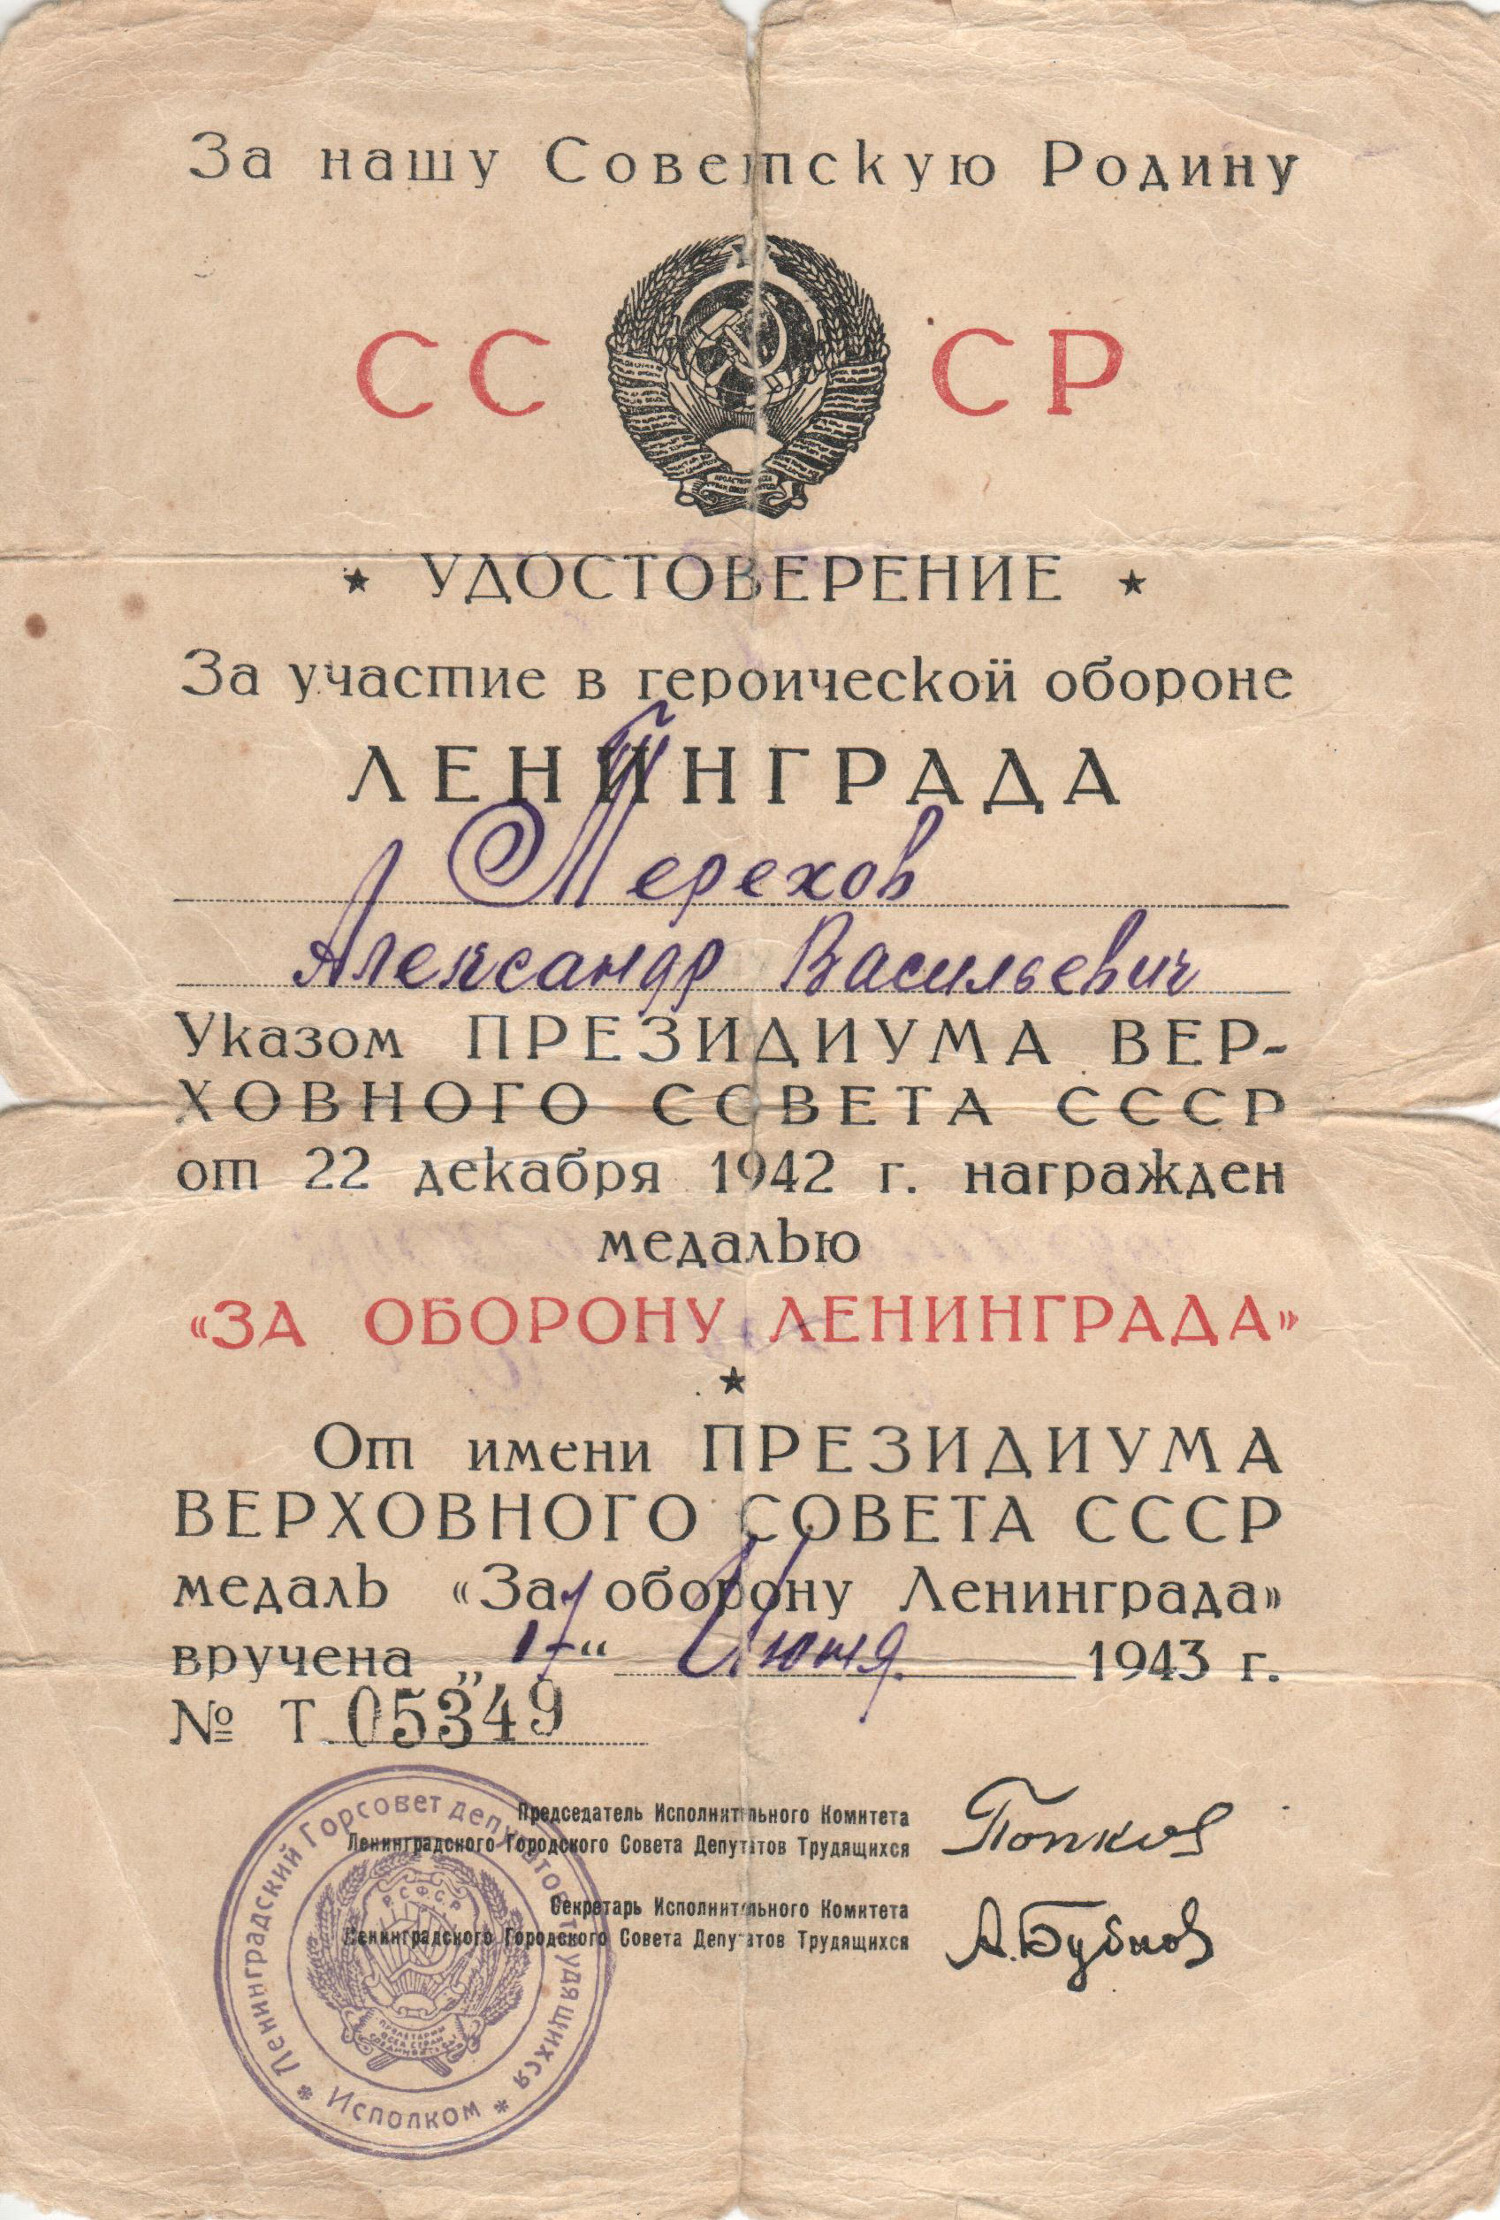 За нашу Советскую Родину
СС СР
★ УДОСТОВЕРЕНИЕ ★
За участие в героической обороне
ЛЕНИНГРАДА
Терехов
Александр Васильевич
Указом ПРЕЗИДИУМА ВЕР-
ХОВНОГО СОВЕТА СССР
от 22 декабря 1942 г. награжден
медалью
«ЗА ОБОРОНУ ЛЕНИНГРАДА»
★
От имени ПРЕЗИДИУМА
ВЕРХОВНОГО СОВЕТА СССР
медаль «За оборону Ленинграда»
вручена „17“ Июня 1943 г.
№ Т 05349
Председатель Исполнительного Комитета
Ленинградского Городского Совета Депутатов Трудящихся
Попков
Секретарь Исполнительного Комитета
Ленинградского Городского Совета Депутатов Трудящихся
А. Бубнов
Ленинградский Горсовет депутатов трудящихся
* Исполком *
РСФСР
ПРОЛЕТАРИИ
ВСЕХ СТРАН
СОЕДИНЯЙТЕСЬ